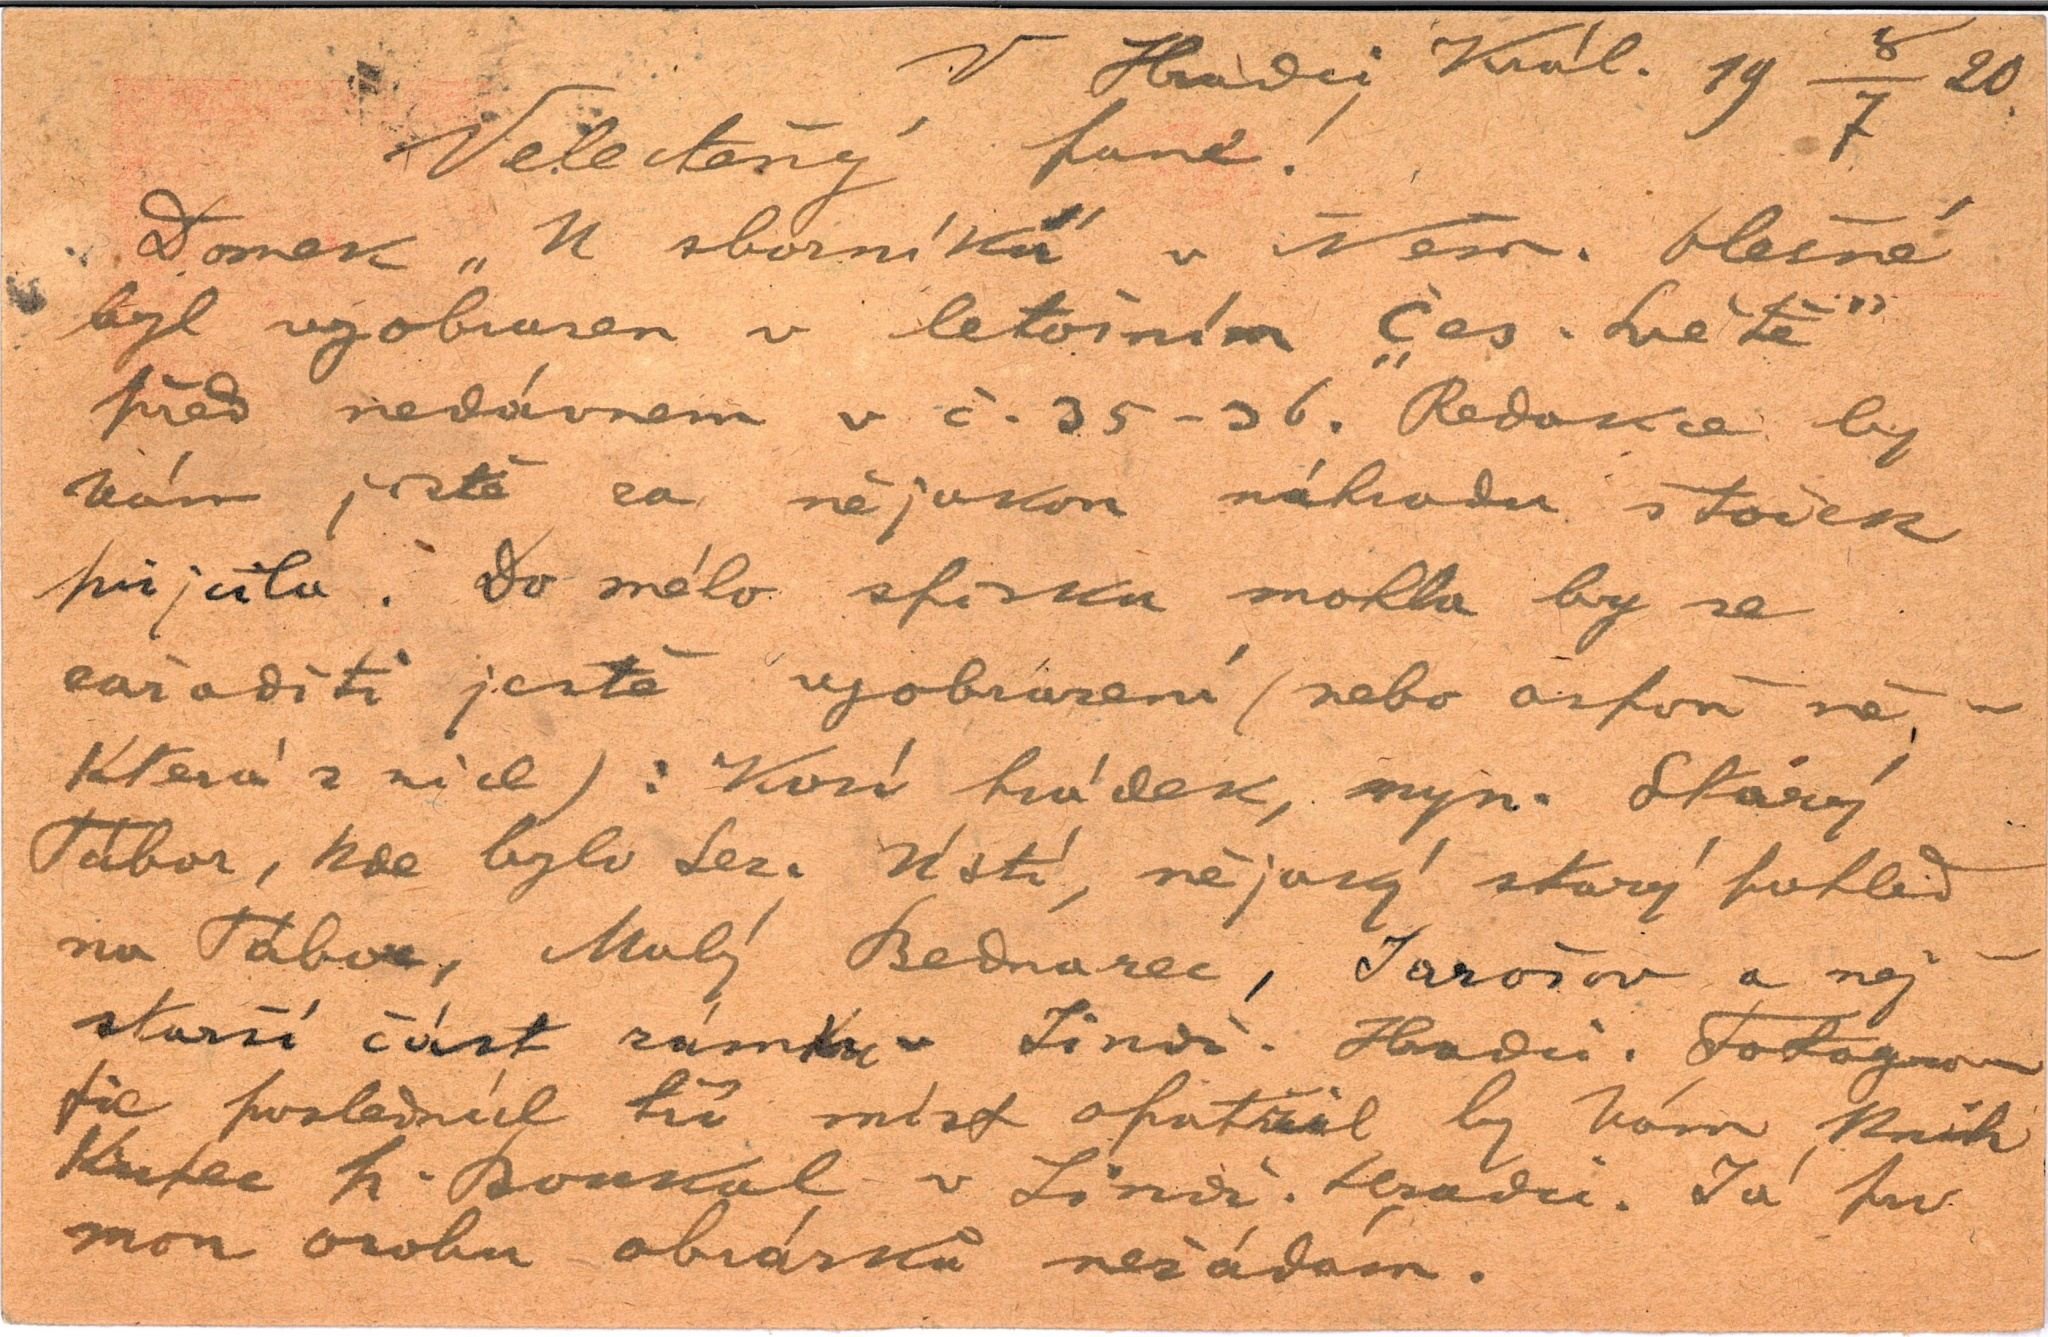 V Hradci Král. 19 8/7 20.
Velectěný pane!
Domek „U sborníků" v Něm. Olešné
byl vyobrazen v letošním „Čes. Světě"
před nedávnem v č. 35-36. Redakce by
Vám jistě za nějakou náhradu štoček
půjčila. Do mélo spisku mohla by se
zařaditi ještě vyobrazení (nebo aspoň ně-
která z nich): Kozí hrádek, nyn. Starý
Tábor, kde bylo Sez. Ústí, nějaký starý pohled
na Tábor, Malý Bednarec, Jarošov a nej-
starší část zámku v Jindř. Hradci. Fotogra-
fie posledních tří míst opatřil by Vám knih
kupec p. Boukal v Jindř. Hradci. Já pro
mou osobu obrázků nežádám.